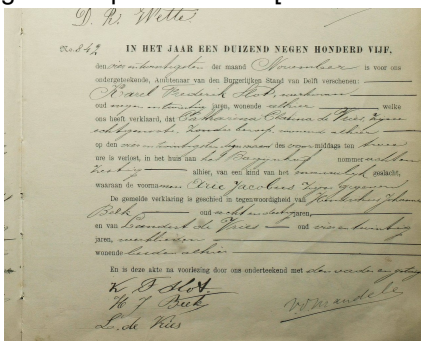 D. R. Wette
No 842 IN HET JAAR EEN DUIZEND NEGEN HONDERD VIJF,
den vier en twintigsten der maand November is voor ons
ondergeteekende, Ambtenaar van den Burgerlijken Stand van Delft verschenen:
Karel Frederik Slot, werkman
oud negen en twintig jaren, wonende alhier welke
ons heeft verklaard, dat Catharina Clasina de Vries, zijne
echtgenoote, zonder beroep, wonende alhier
op den vier en twintigsten dezer maand des middags ten
ure is verlost, in het huis aan het nommer achttien
alhier, van een kind van het mannelijk geslacht,
waaraan de voornamen Jacobus zijn gegeven
De gemelde verklaring is geschied in tegenwoordigheid van Johannes
Beek oud acht en jaren,
en van Leendert de Vries oud vier en twintig
jaren, werklieden
wonende beiden alhier
En is deze akte na voorlezing door ons onderteekend met den vader en getuigen
K F Slot.
H J Beek
L. de Vries